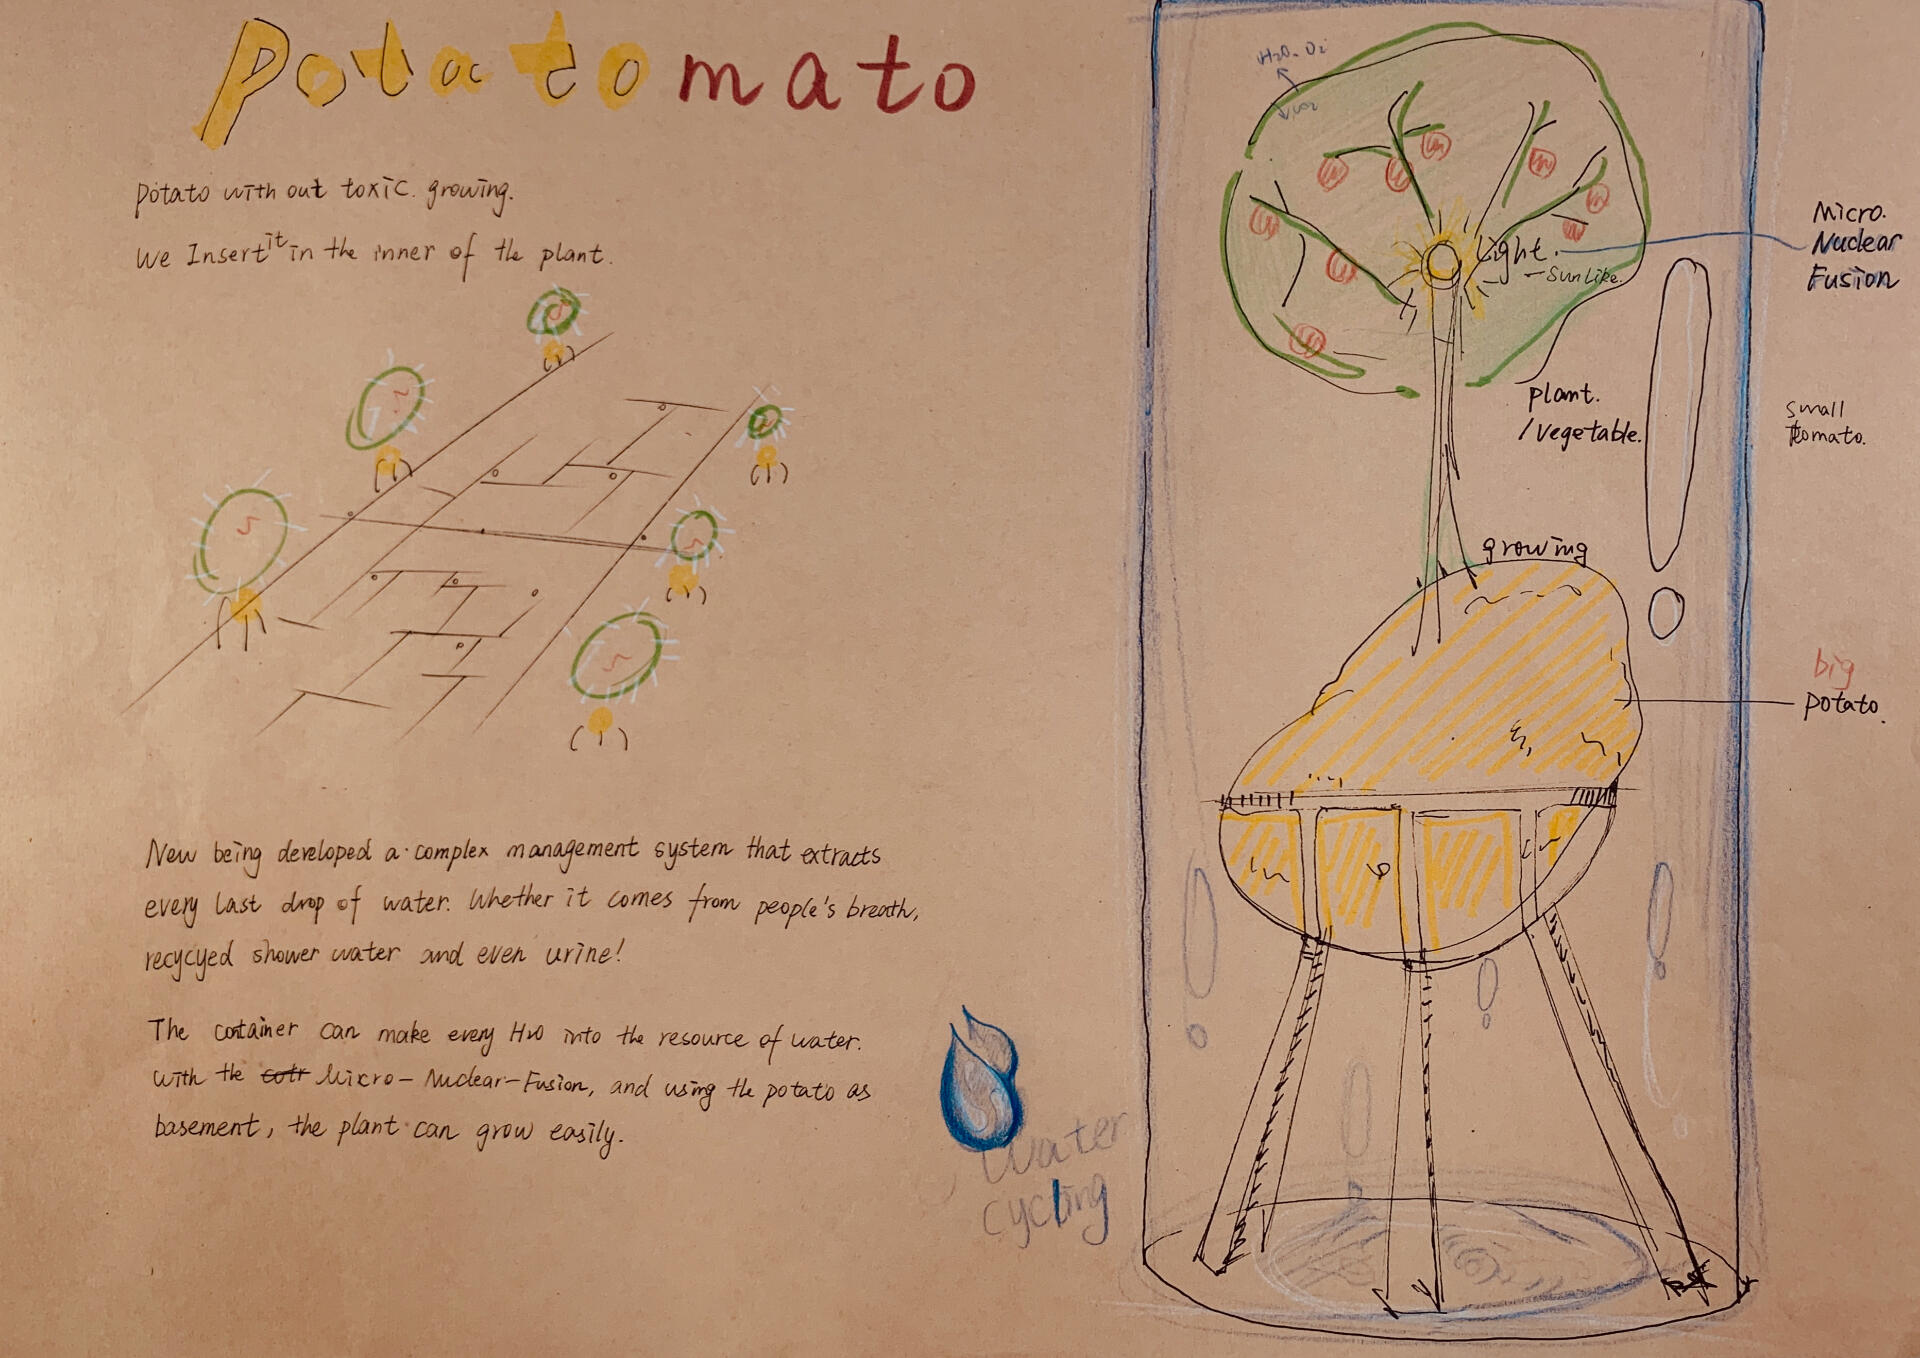 Potatomato
potato with out toxic. growing.
We Insert it in the inner of the plant.
New being developed a complex management system that extracts
every last drop of water. Whether it comes from people's breath,
recycyed shower water and even urine!
The container can make every H2O into the resource of water.
with the Micro-Nuclear-Fusion, and using the potato as
basement, the plant can grow easily.
Water
cycling
H2O. O2
Light.
-Sunlike.
Micro.
Nuclear
Fusion
plant.
/vegetable.
small
tomato.
growing
big
potato.